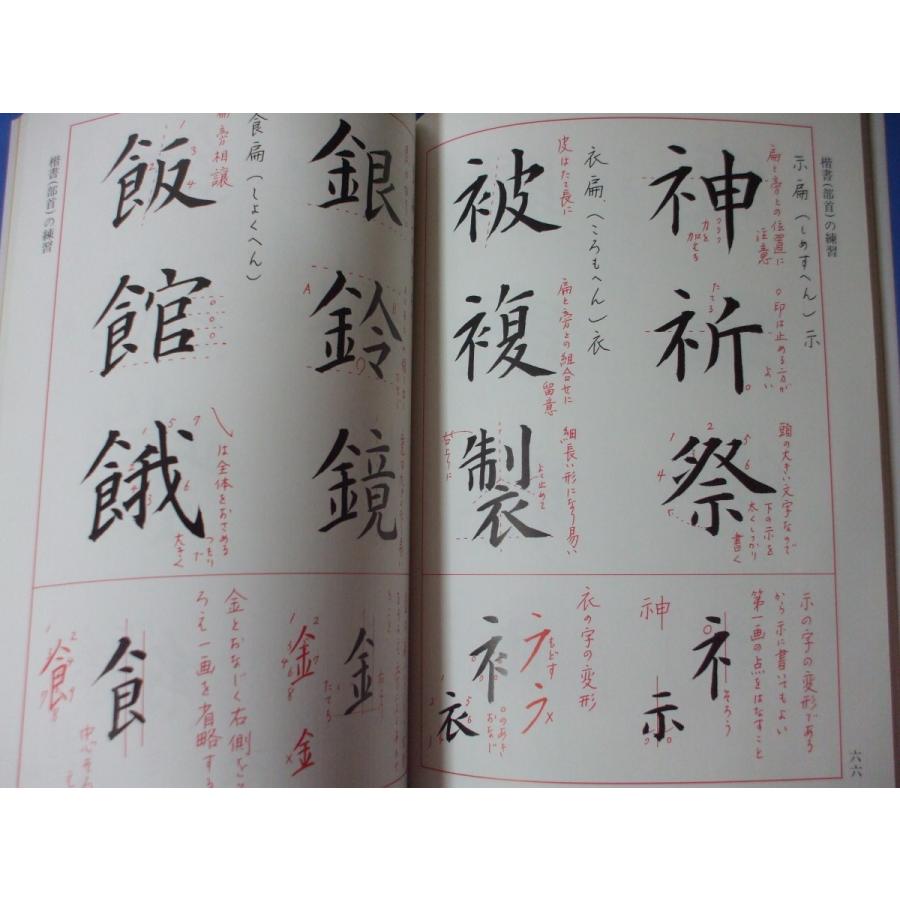 楷書(部首)の練習
示扁(しめすへん)示
神
扁と旁との位置に
注意
力を
加える
祈
たてる
○印は止める方が
よい
祭
頭の大きい文字なので
下の示を
太くしっかり
書く
衣扁(ころもへん)衣
被
皮はたて長に
複
扁と旁との組合せに
留意
製
細長い形になり易い
よせ止めて
示の字の変形である
から示に書いてもよい
第一画の点をはなすこと
そろう
神
示
衣の字の変形
もどす
○のあき
おなじ
衣
六六
銀
鈴
鏡
食扁(しょくへん)
扁旁相譲
飯
館
餓
は全体をおさめる
つもりで
大きく
金
金
金
たてる
金とおなじく右側をそ
ろえ一画を省略する
中心そろ
楷書(部首)の練習